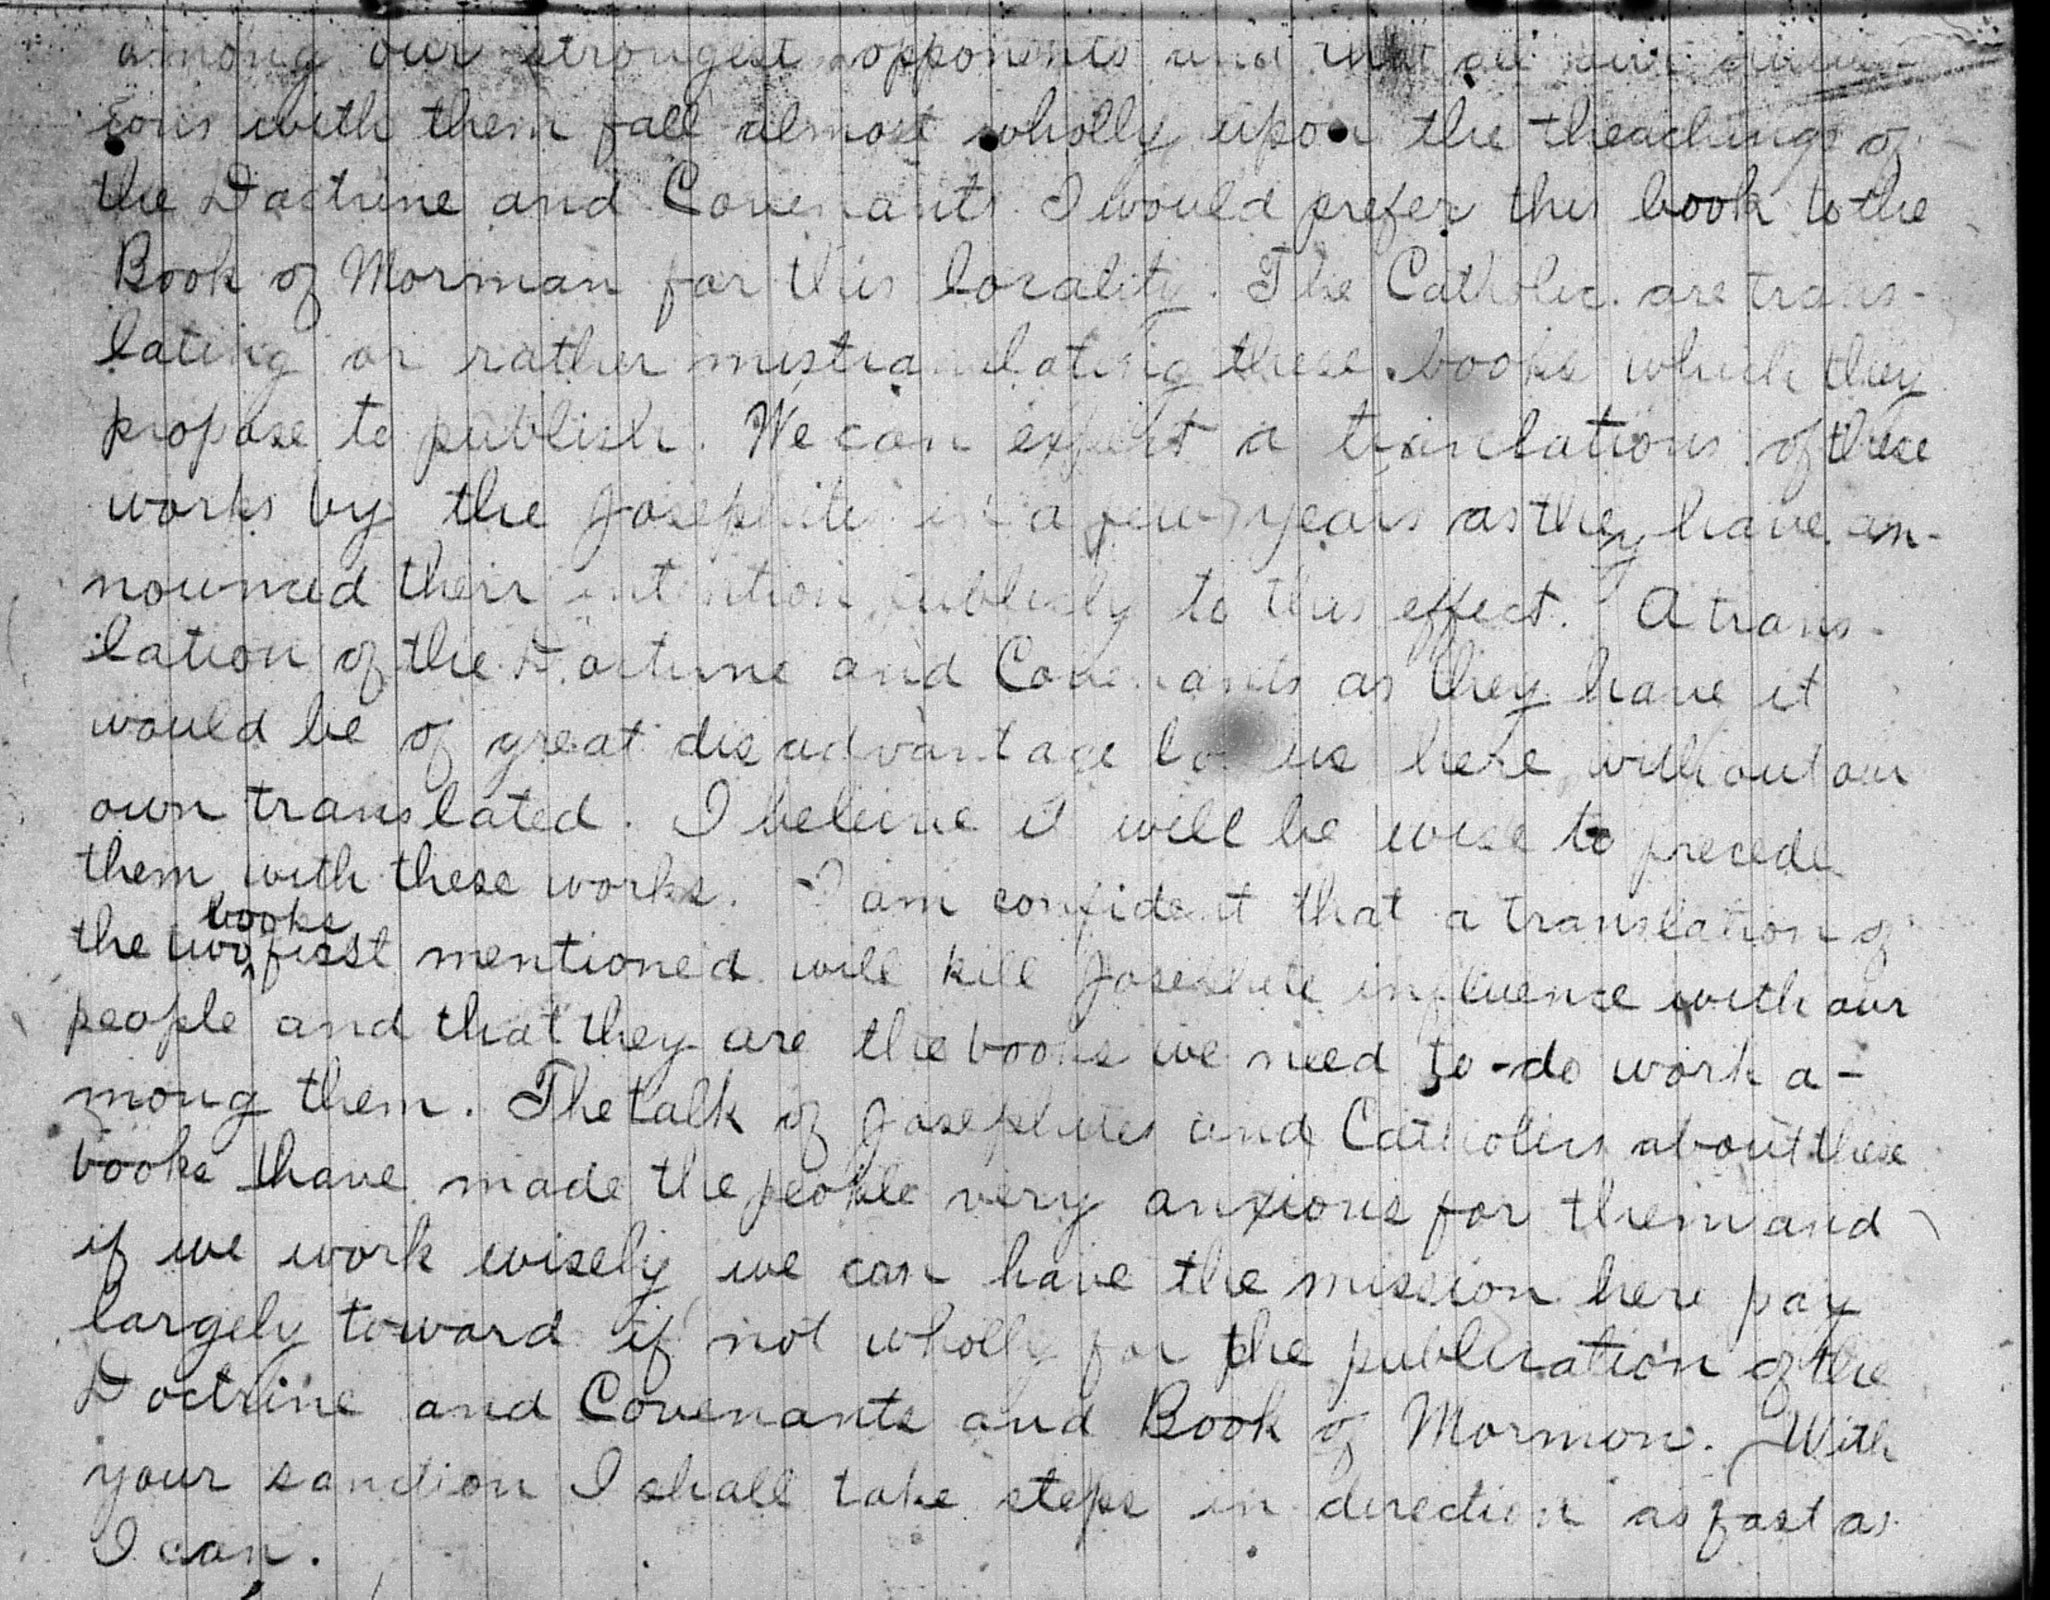 among our strongest opponents and that all our
ions with them fall almost wholly upon the theachings of
the Doctrine and Covenants. I would prefer this book to the
Book of Morman for this locality. The Catholic are trans-
lating or rather mistranslating these books which they
propose to publish. We can expect a translations of these
works by the Josephites in a few years as they have an-
nounced their intention publicly to this effect. A trans-
lation of the Doctrine and Covenants as they have it
would be of great disadvantage to us here, without our
own translated. I believe it will be wise to precede
them with these works. I am confident that a translation of
books
the two first mentioned will kill Josephite influence with our
people and that they are the books we need to do work a-
mong them. The talk of Josephites and Catholics about these
books have made the people very anxious for them and
if we work wisely we can have the mission here pay
largely toward if not wholly for the publication of the
Doctrine and Covenants and Book of Mormon. With
your sanction I shall take steps in direction as fast as
I can.